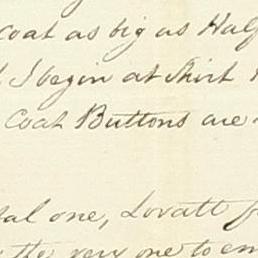 coat as big as Half
I begin at Shirt
Coat Buttons are
tal one, Lovatt
the very one to em